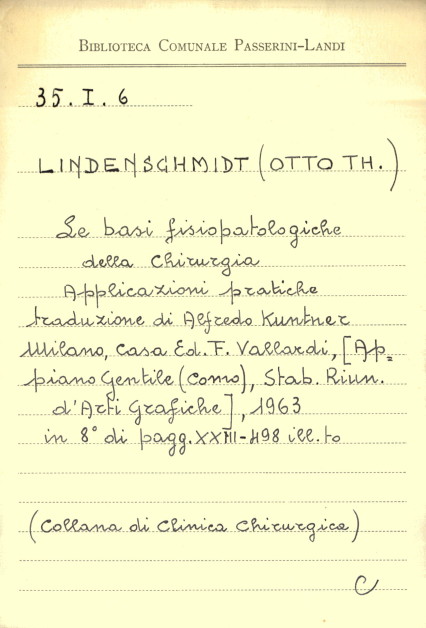 BIBLIOTECA COMUNALE PASSERINI-LANDI
35. I. 6
LINDENSCHMIDT (OTTO TH.)
Le basi fisiopatologiche
della Chirurgia
Applicazioni pratiche
traduzione di Alfredo Kuntner
Milano, Casa Ed. F. Vallardi, [Ap=
piano Gentile (Como), Stab. Riun.
d'Arti Grafiche], 1963
in 8° di pagg. XXIII-498 ill.to
(Collana di Clinica Chirurgica)
C